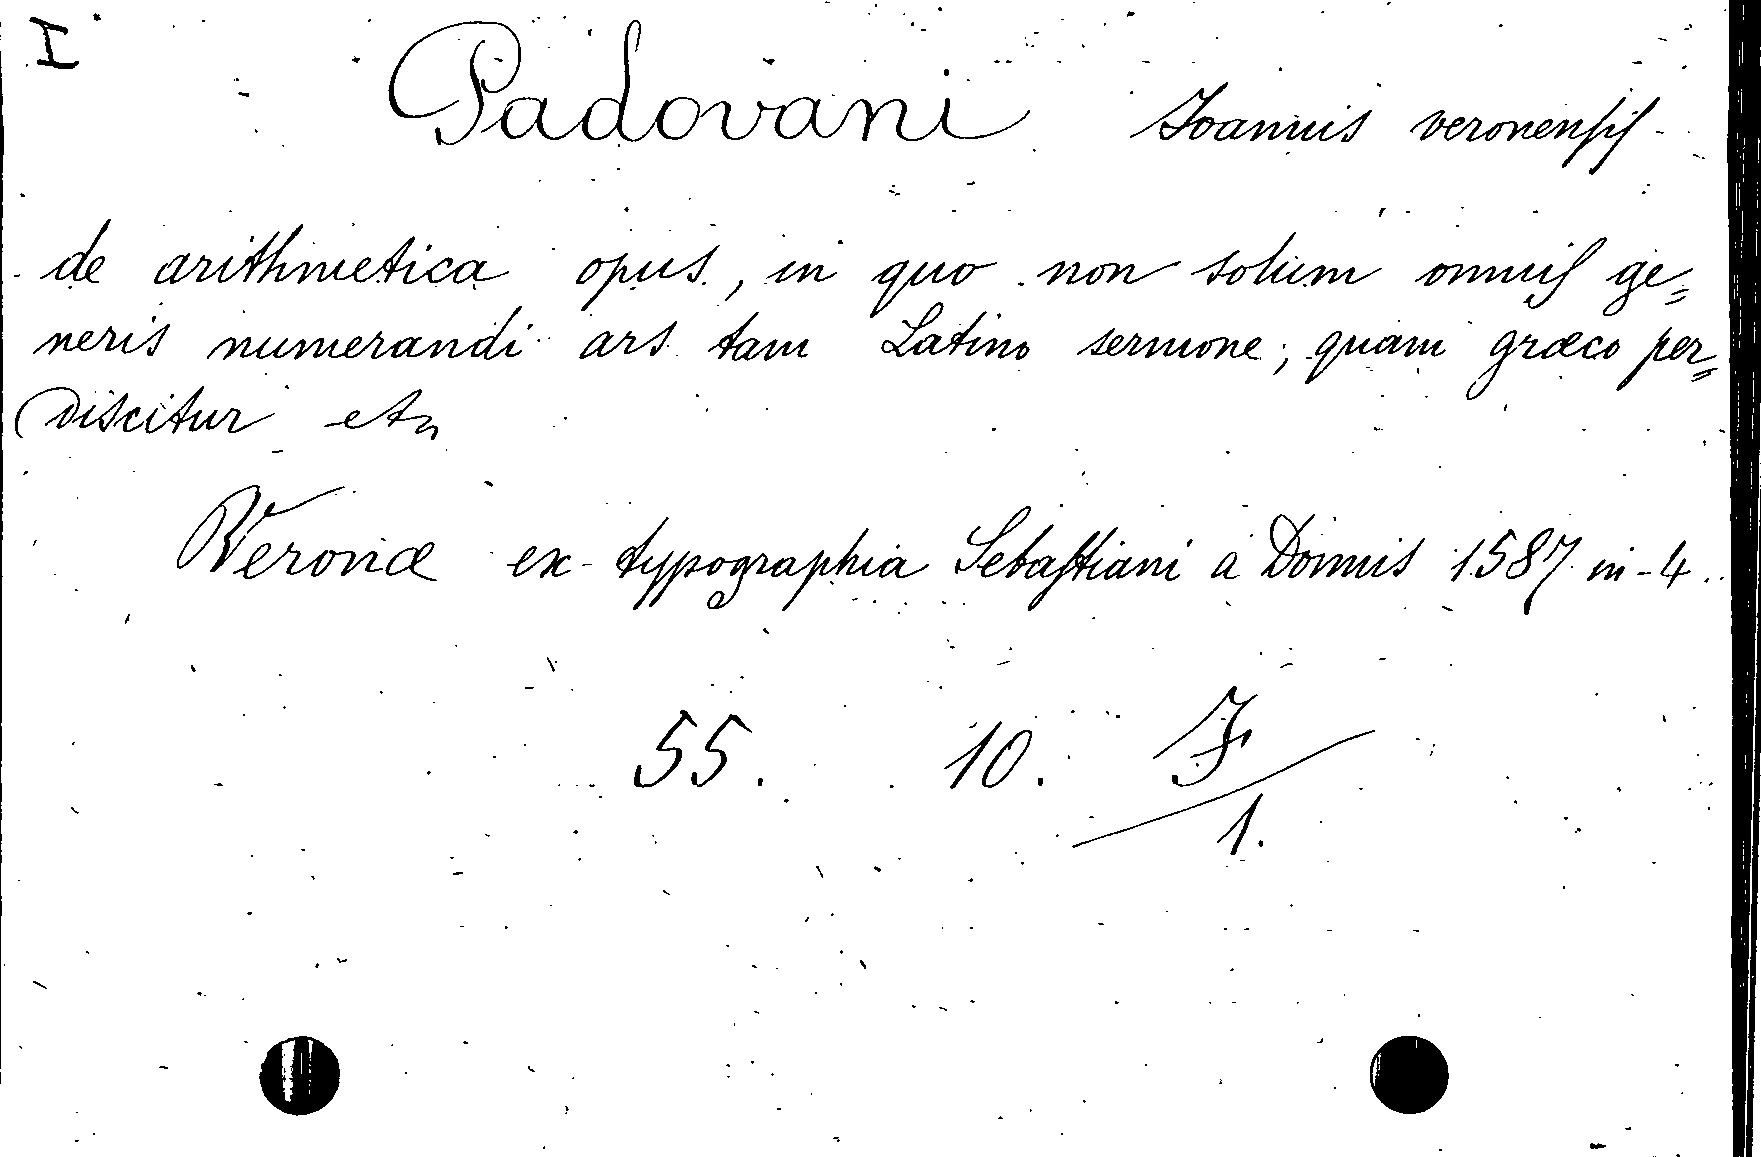 I
Padovani Joannis veronensis
de arithmetica opus, in quo non solum omnis ge=
neris numerandi ars tam Latino sermone, quam græco per=
discitur etc
Veronæ ex typographia Sebastiani a Donnis 1587 in-4.
55. 10. F
1.